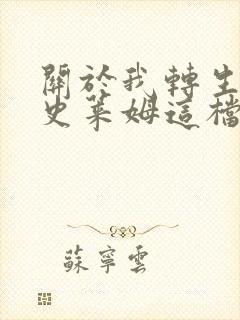 關於我轉生
史萊姆這檔
蘇寧雲